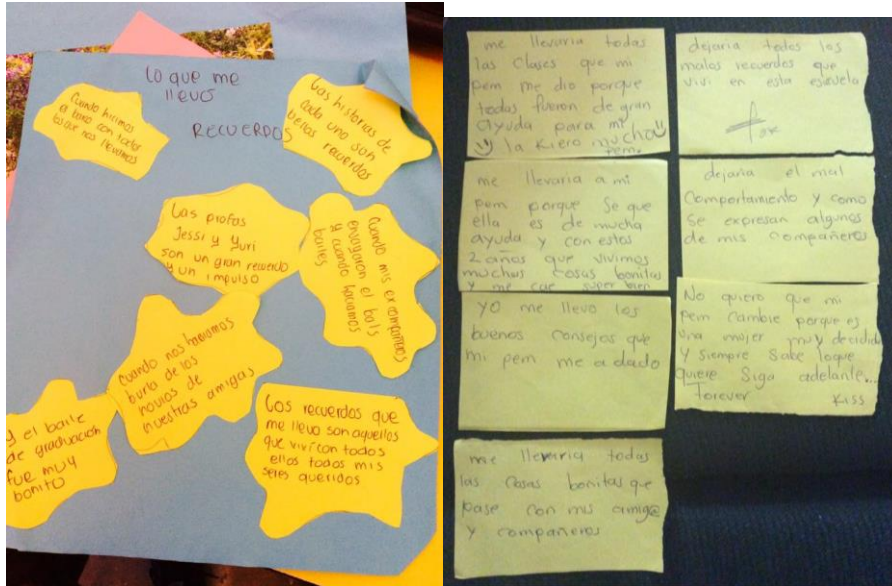 lo que me
llevo
RECUERDOS
Cuando hicimos
el con todos
los que nos llevamos
Las historias de
cada uno son
bellos recuerdos
Las profas
Jessi y Yuri
son un gran recuerdo
y un impulso
Cuando mis excompañeros
ensallaron el bals
y cuando haciamos
bailes
Cuando nos haciamos
burla de los
novios de
nuestras amigas
y el baile
de graduación
fue muy
bonito
Los recuerdos que
me llevo son aquellos
que vivi con todos
ellos todos mis
seres queridos
me llevaria todas
las clases que mi
pem me dio porque
todas fueron de gran
ayuda para mi
la kiero mucha
pem.
me llevaria a mi
pem porque se que
ella es de mucha
ayuda y con estos
2 años que vivimos
muchas cosas bonitas
y me cae super bien
yo me llevo los
buenos consejos que
mi pem me a dado
me llevaria todas
las cosas bonitas que
pase con mis amig@
y compañeros
dejaria todos los
malos recuerdos que
vivi en esta escuela
dejaria el mal
comportamiento y como
se expresan algunos
de mis compañeros
No quiero que mi
pem cambie porque es
una mujer muy decidida
y siempre sabe loque
quiere siga adelante...
Forever Kiss